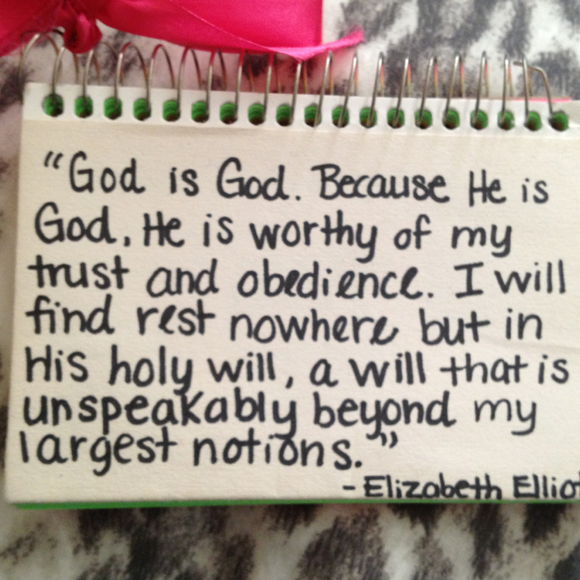 “God is God. Because He is
God, He is worthy of my
trust and obedience. I will
find rest nowhere but in
His holy will, a will that is
unspeakably beyond my
largest notions.”
- Elizabeth Elliot